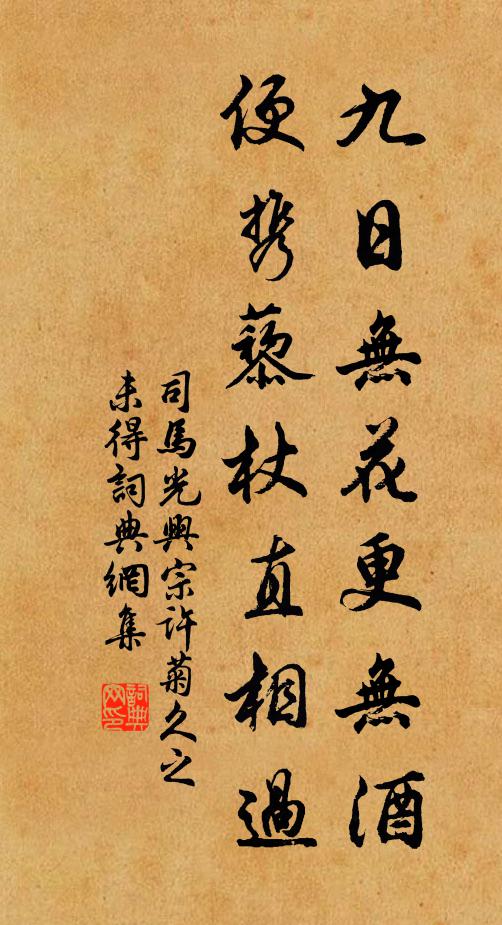 九日無花更無酒
便携藜杖直相過
司馬光興宗許菊久之
未得詞典網集
詞典網印